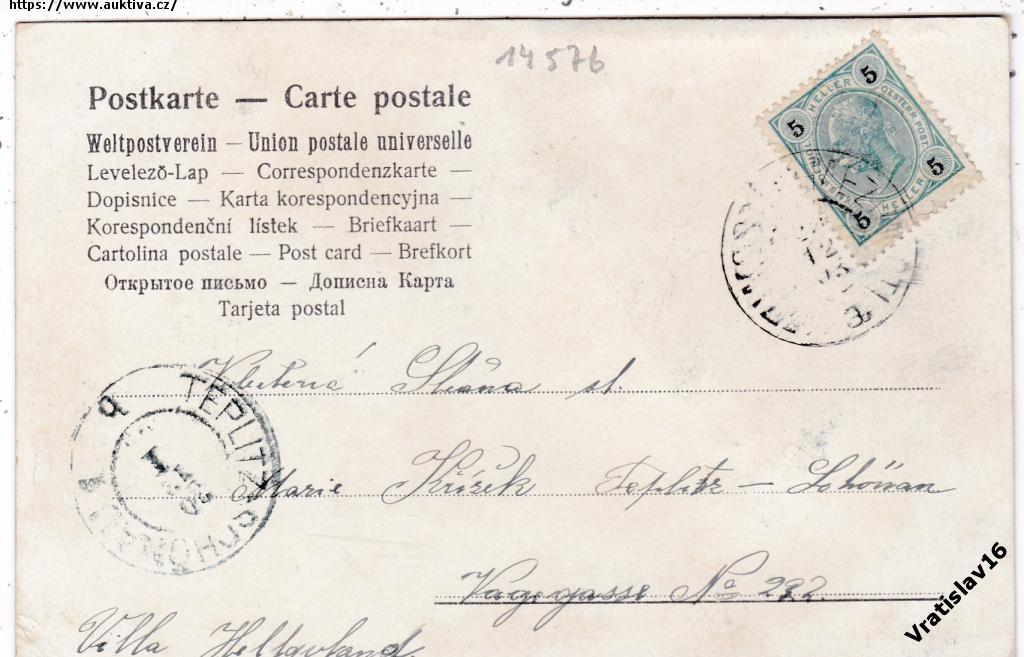 https://www.auktiva.cz/
14576
Postkarte — Carte postale
Weltpostverein — Union postale universelle
Levelező-Lap — Correspondenzkarte —
Dopisnice — Karta korespondencyjna —
Korespondenční lístek — Briefkaart —
Cartolina postale — Post card — Brefkort
Открытое письмо — Дописна Карта
Tarjeta postal
5 HELLER 5 OESTERR. POST 5 HELLER 5
Slečna
TEPLITZ SCHÖNAU
Marie Křížek Teplitz — Schönau
No 222
Villa Helgoland.
Vratislav16